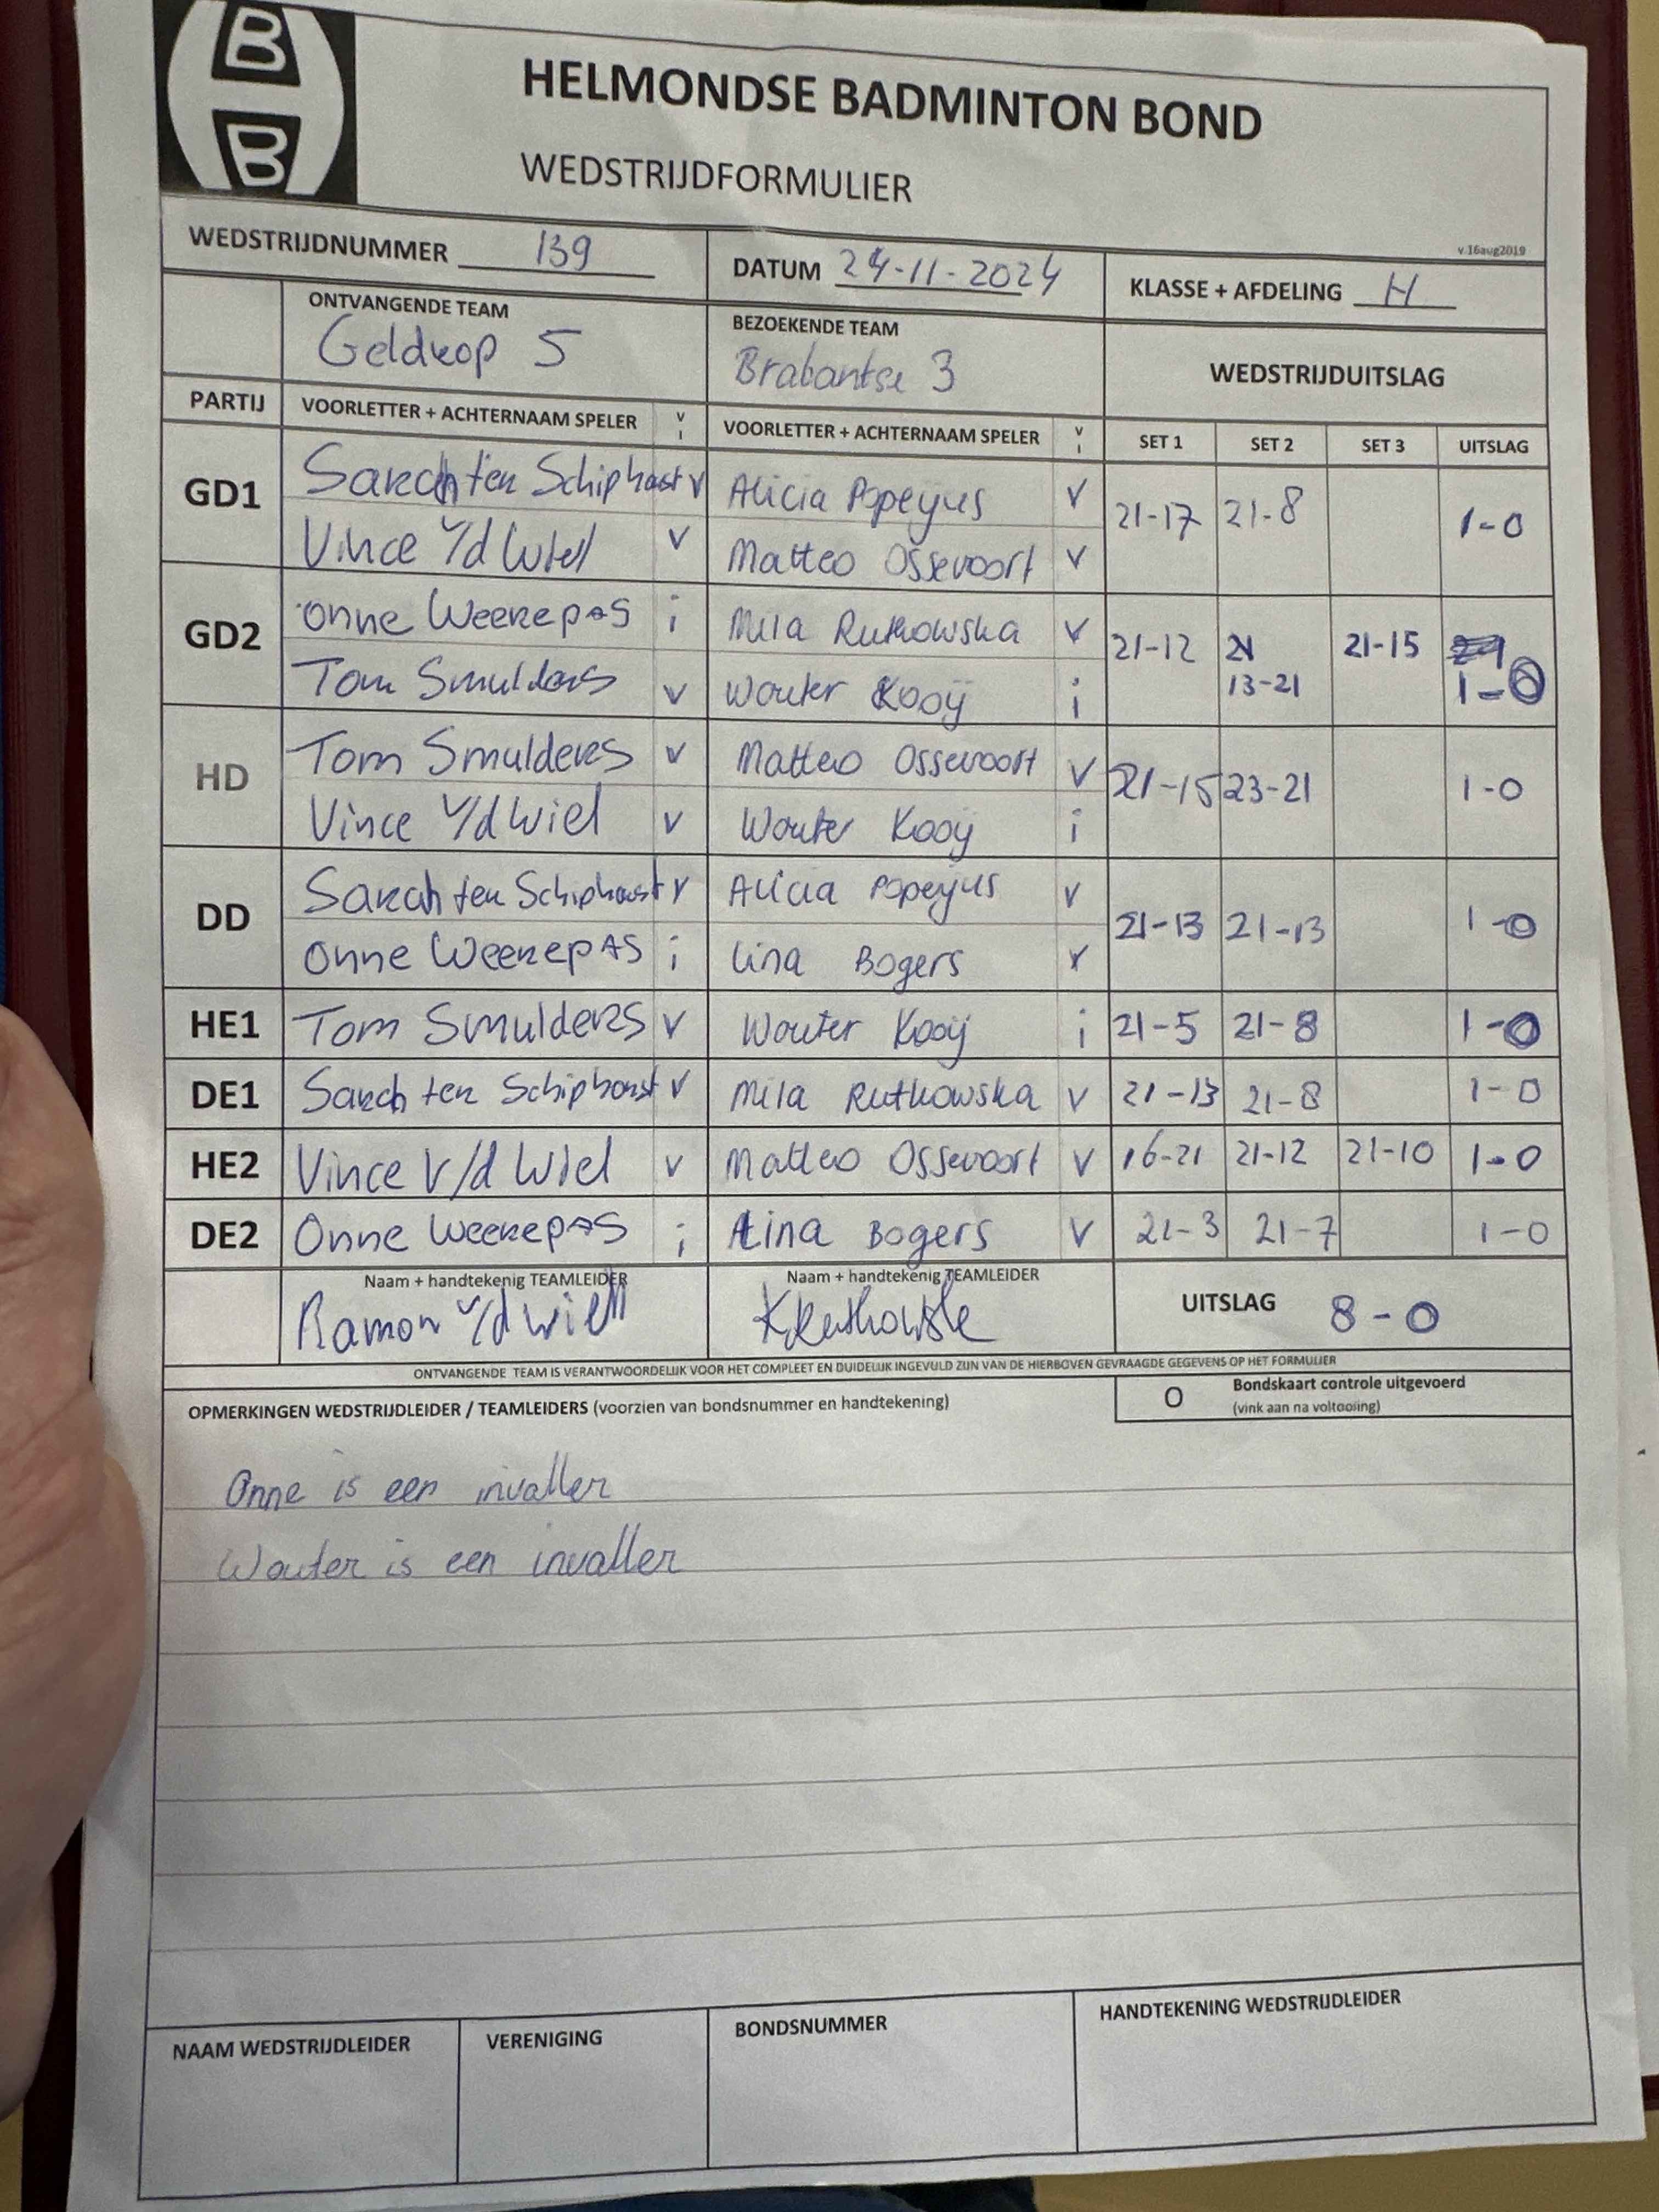 B
B
HELMONDSE BADMINTON BOND
WEDSTRIJDFORMULIER
v.16aug2019
WEDSTRIJDNUMMER 139 DATUM 24-11-2024 KLASSE + AFDELING H
ONTVANGENDE TEAM BEZOEKENDE TEAM
Geldrop 5 Brabantse 3 WEDSTRIJDUITSLAG
PARTIJ VOORLETTER + ACHTERNAAM SPELER V I VOORLETTER + ACHTERNAAM SPELER V I SET 1 SET 2 SET 3 UITSLAG
GD1 Sarah ten Schiphorst v Alicia Popeijus v 21-17 21-8 1-0
Vince v/d Wiel v Matteo Ossevoort v
GD2 Onne Weerepas i Mila Rutkowska v 21-12 21 21-15
Tom Smulders v Wouter Kooij i 13-21 1-0
HD Tom Smulders v Matteo Ossevoort v 21-15 23-21 1-0
Vince v/d Wiel v Wouter Kooij i
DD Sarah ten Schiphorst v Alicia Popeijus v 21-13 21-13 1-0
Onne Weerepas i Lina Bogers v
HE1 Tom Smulders v Wouter Kooij i 21-5 21-8 1-0
DE1 Sarah ten Schiphorst v Mila Rutkowska v 21-13 21-8 1-0
HE2 Vince v/d Wiel v Matteo Ossevoort v 16-21 21-12 21-10 1-0
DE2 Onne Weerepas i Lina Bogers v 21-3 21-7 1-0
Naam + handtekenig TEAMLEIDER Naam + handtekenig TEAMLEIDER
Ramon v/d Wiel KRutkowska UITSLAG 8-0
ONTVANGENDE TEAM IS VERANTWOORDELIJK VOOR HET COMPLEET EN DUIDELIJK INGEVULD ZIJN VAN DE HIERBOVEN GEVRAAGDE GEGEVENS OP HET FORMULIER
OPMERKINGEN WEDSTRIJDLEIDER / TEAMLEIDERS (voorzien van bondsnummer en handtekening) O Bondskaart controle uitgevoerd
(vink aan na voltooiing)
Onne is een invaller
Wouter is een invaller
NAAM WEDSTRIJDLEIDER VERENIGING BONDSNUMMER HANDTEKENING WEDSTRIJDLEIDER